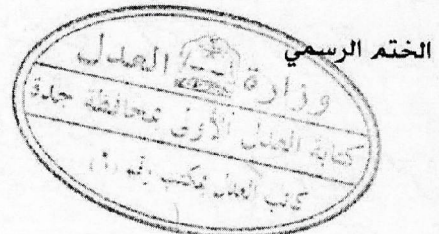 الختم الرسمي
وزارة العدل
كتابة العدل الأولى بمحافظة جدة
كاتب العدل بمكتب رقم (١)